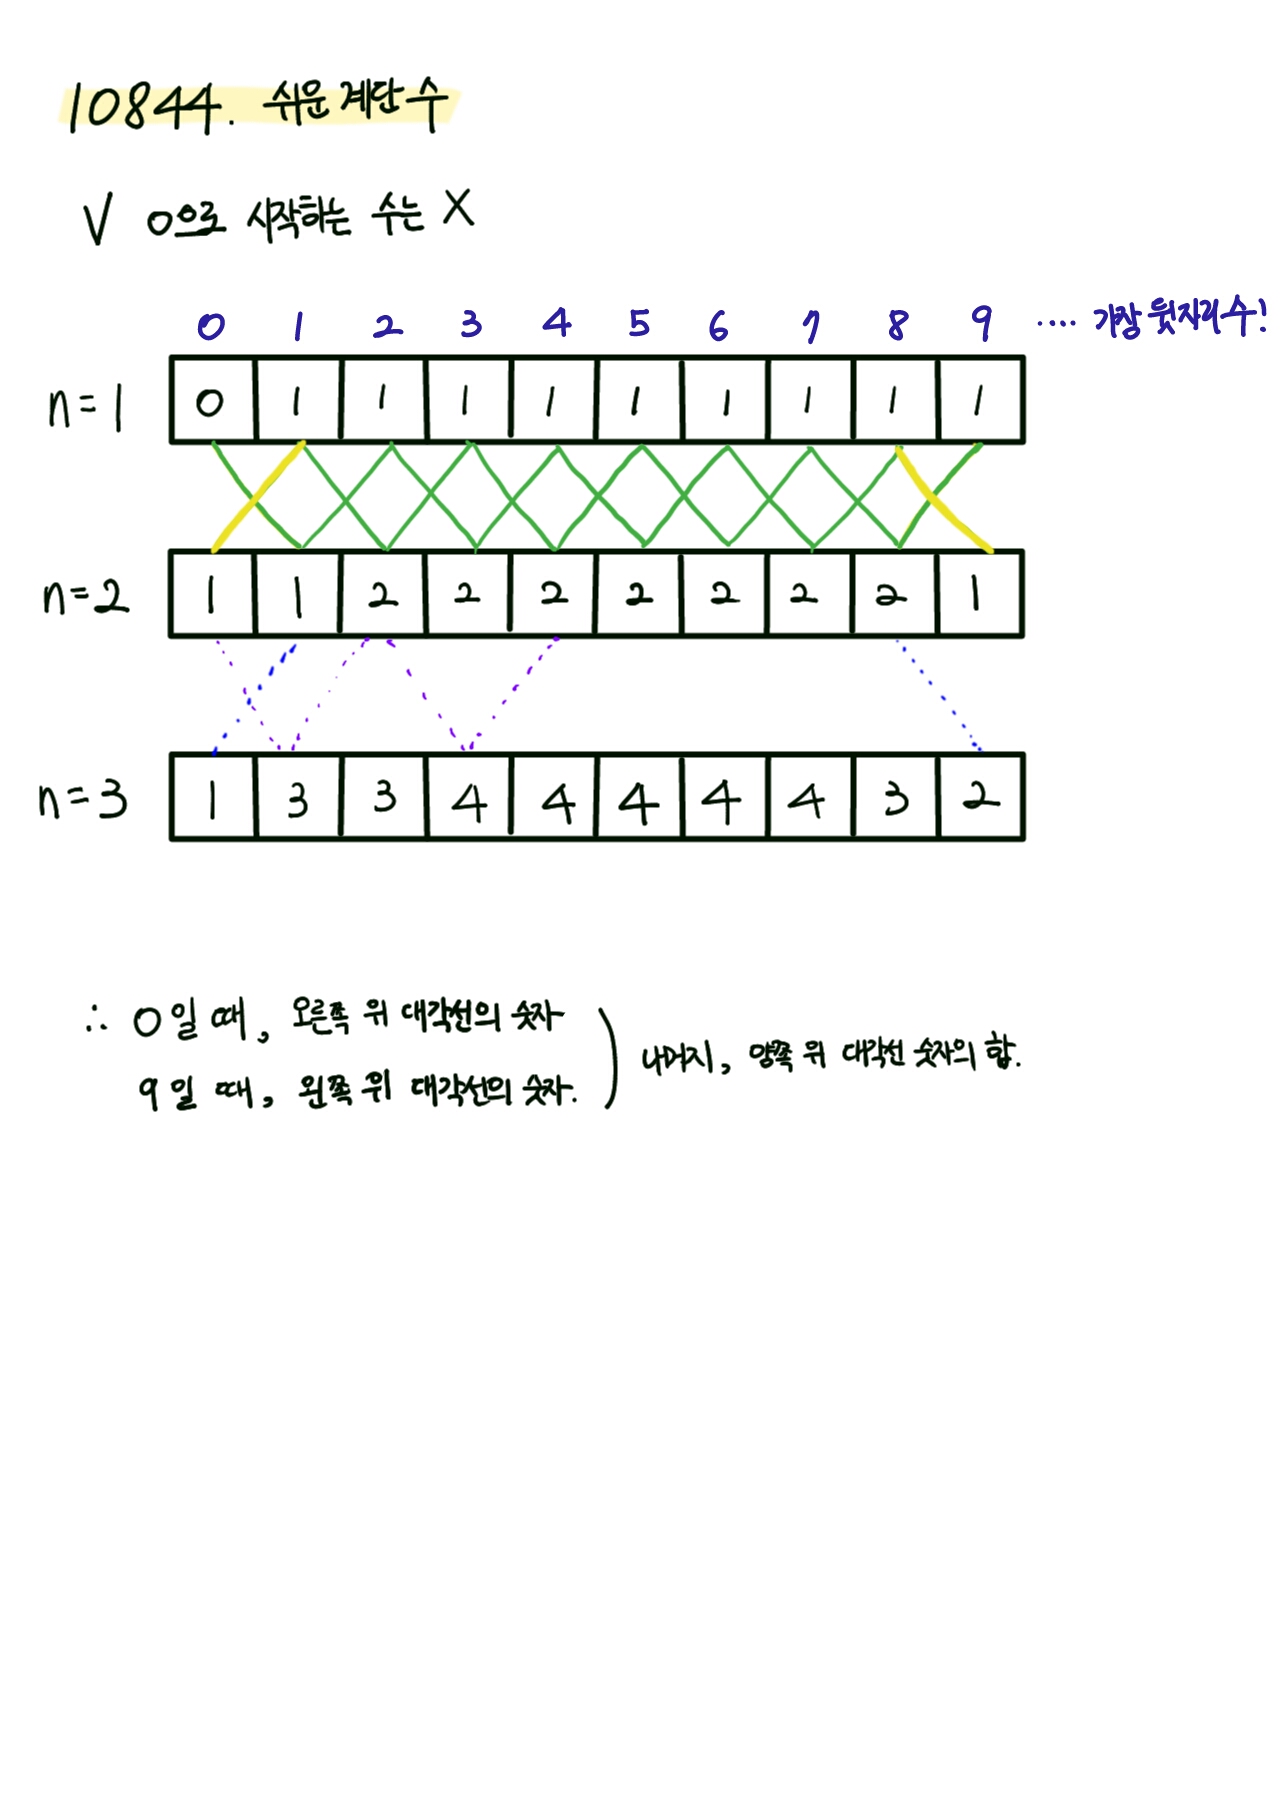 10844. 쉬운 계단 수
V 0으로 시작하는 수는 X
0 1 2 3 4 5 6 7 8 9 .... 가장 뒷자리 수!
n=1 0 1 1 1 1 1 1 1 1 1
n=2 1 1 2 2 2 2 2 2 2 1
n=3 1 3 3 4 4 4 4 4 3 2
∴ 0일 때, 오른쪽 위 대각선의 숫자
9일 때, 왼쪽 위 대각선의 숫자.
) 나머지, 양쪽 위 대각선 숫자의 합.